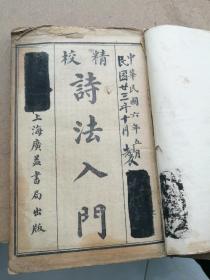 中華民國六年五月
民國廿三年十月
精校
詩法入門
上海廣益書局出版